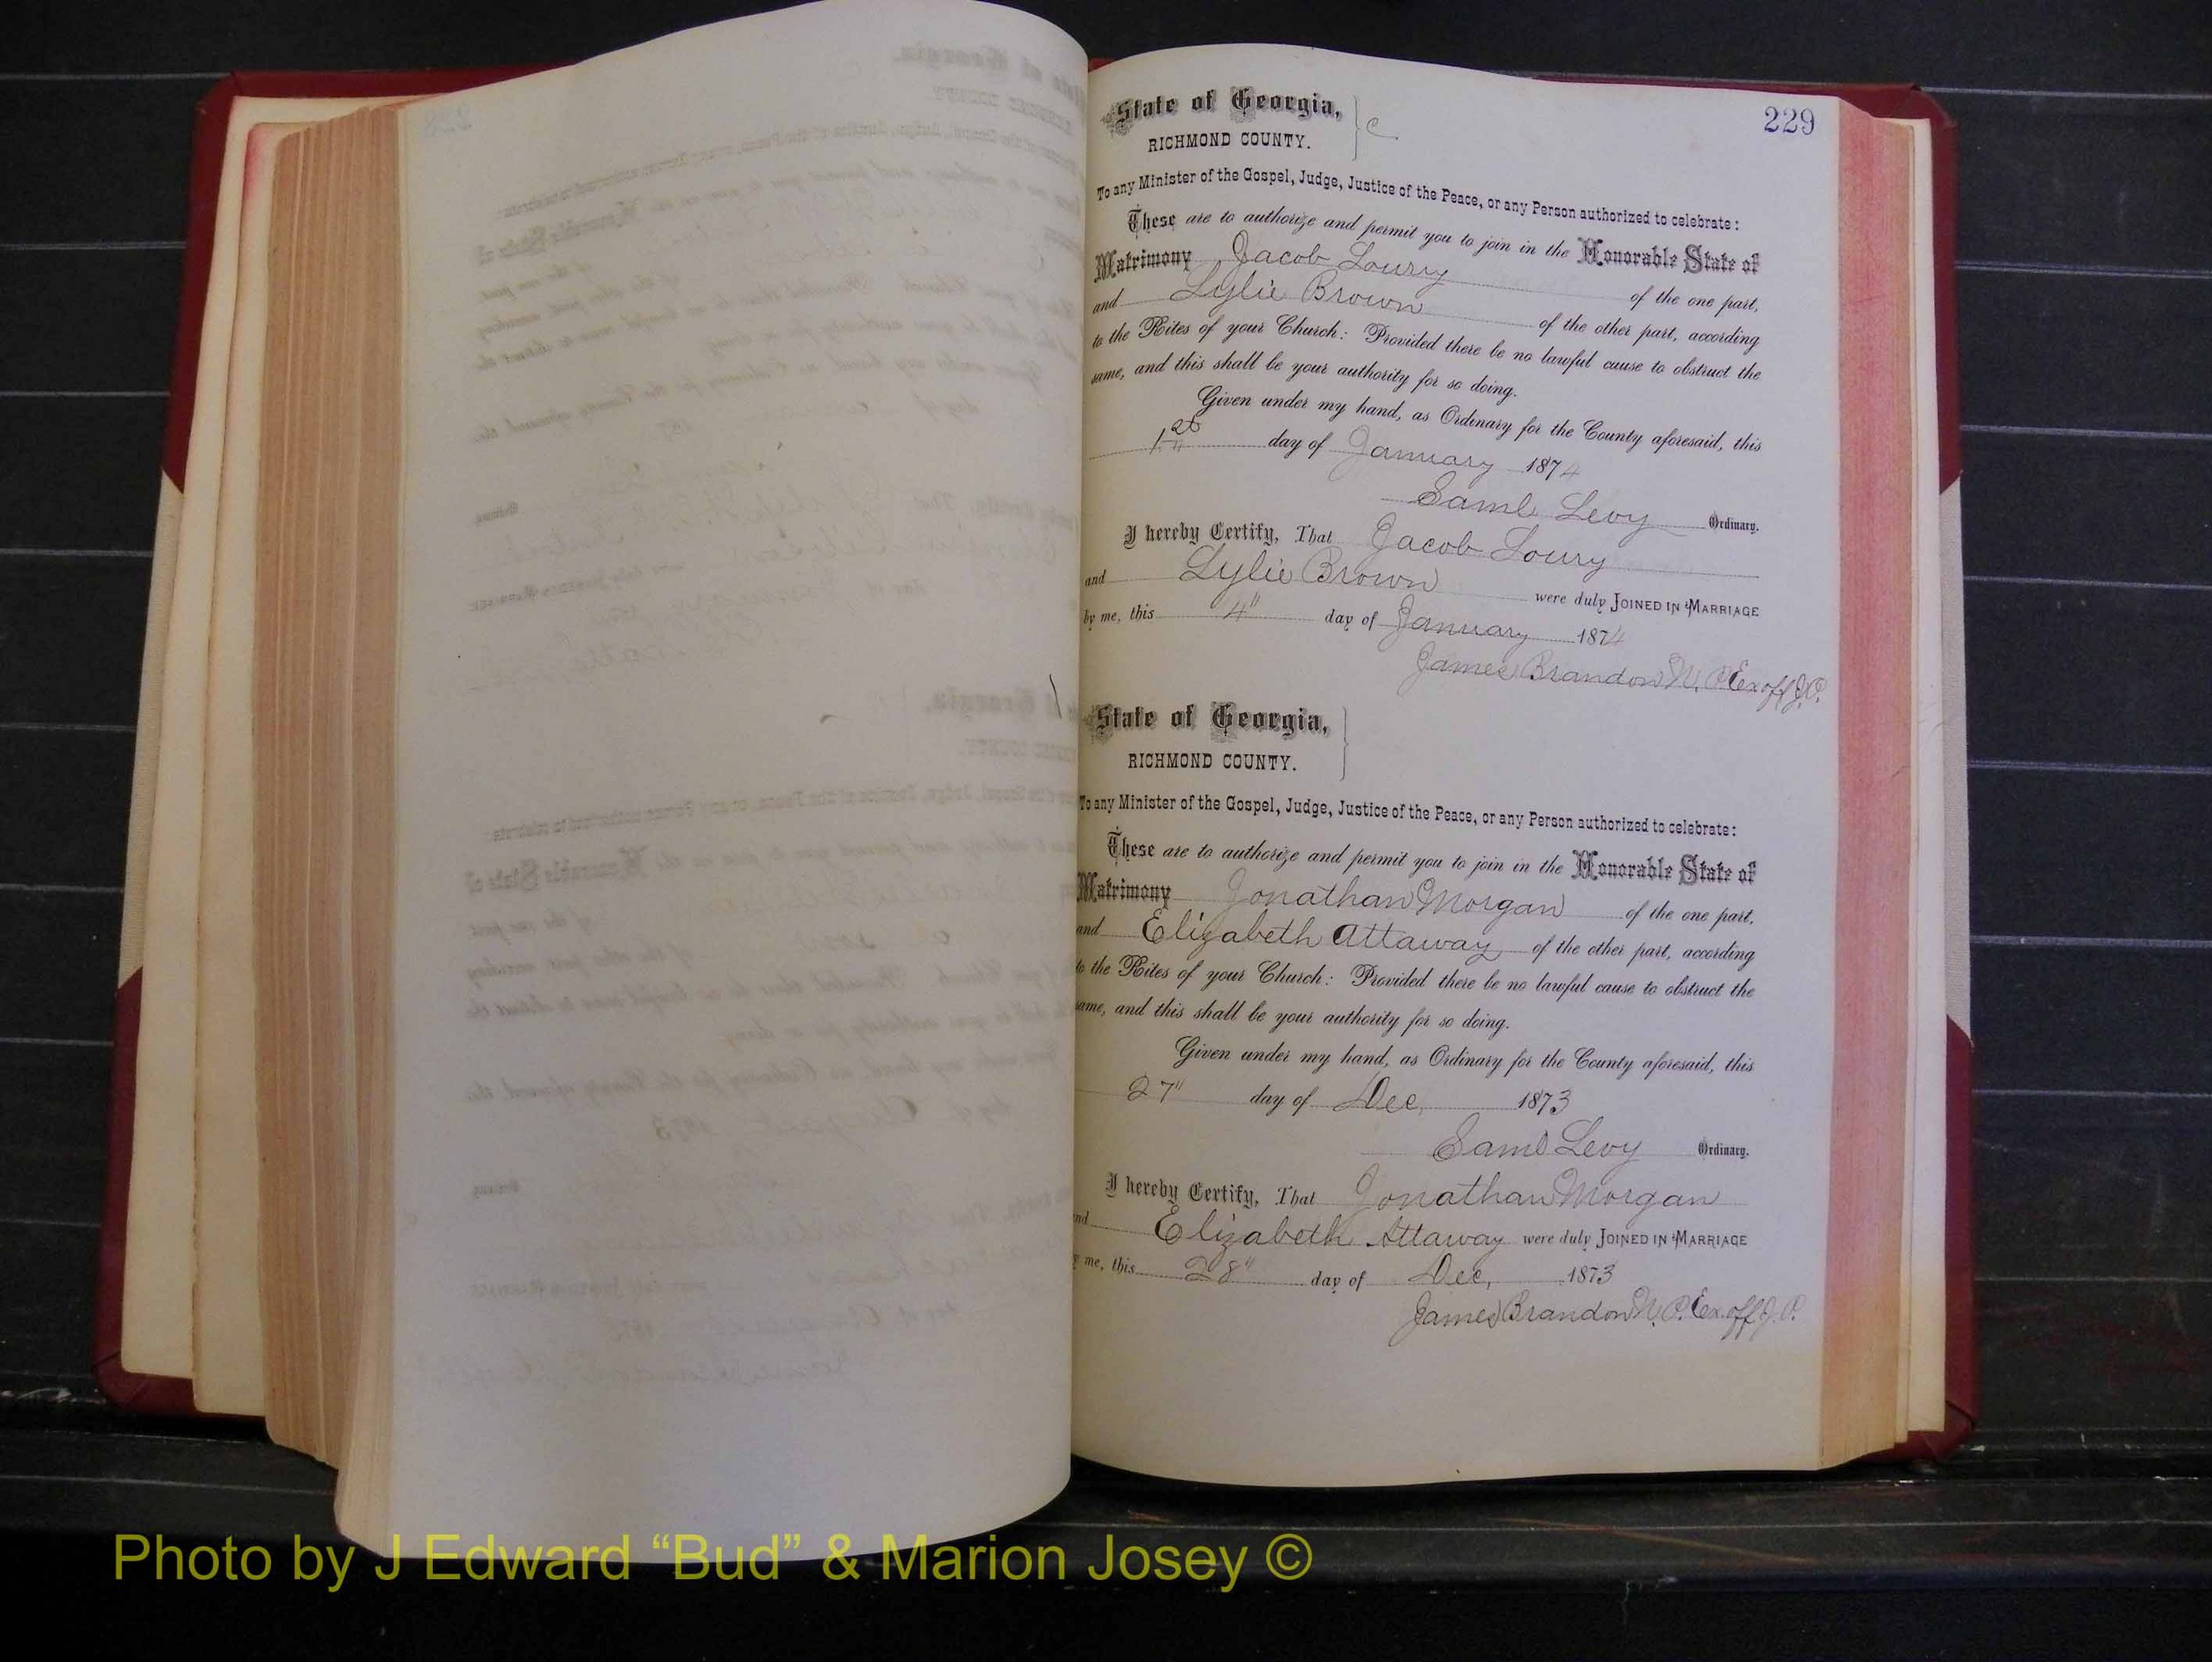 229
State of Georgia,
RICHMOND COUNTY. } c
To any Minister of the Gospel, Judge, Justice of the Peace, or any Person authorized to celebrate:
These are to authorize and permit you to join in the Honorable State of
Matrimony Jacob Loury of the one part,
and Lylie Brown of the other part, according
to the Rites of your Church: Provided there be no lawful cause to obstruct the
same, and this shall be your authority for so doing.
Given under my hand, as Ordinary for the County aforesaid, this
1st day of January 1874
Saml Levy Ordinary.
I hereby Certify, That Jacob Loury
and Lylie Brown were duly JOINED IN MARRIAGE
by me, this 4" day of January 1874
James Brandon N. P. Ex off J. P.
State of Georgia,
RICHMOND COUNTY. }
To any Minister of the Gospel, Judge, Justice of the Peace, or any Person authorized to celebrate:
These are to authorize and permit you to join in the Honorable State of
Matrimony Jonathan Morgan of the one part,
and Elizabeth Attaway of the other part, according
to the Rites of your Church: Provided there be no lawful cause to obstruct the
same, and this shall be your authority for so doing.
Given under my hand, as Ordinary for the County aforesaid, this
27" day of Dec, 1873
Saml Levy Ordinary.
I hereby Certify, That Jonathan Morgan
and Elizabeth Attaway were duly JOINED IN MARRIAGE
by me, this 28" day of Dec, 1873
James Brandon N. P. Ex. off J. P.
Photo by J Edward “Bud” & Marion Josey ©